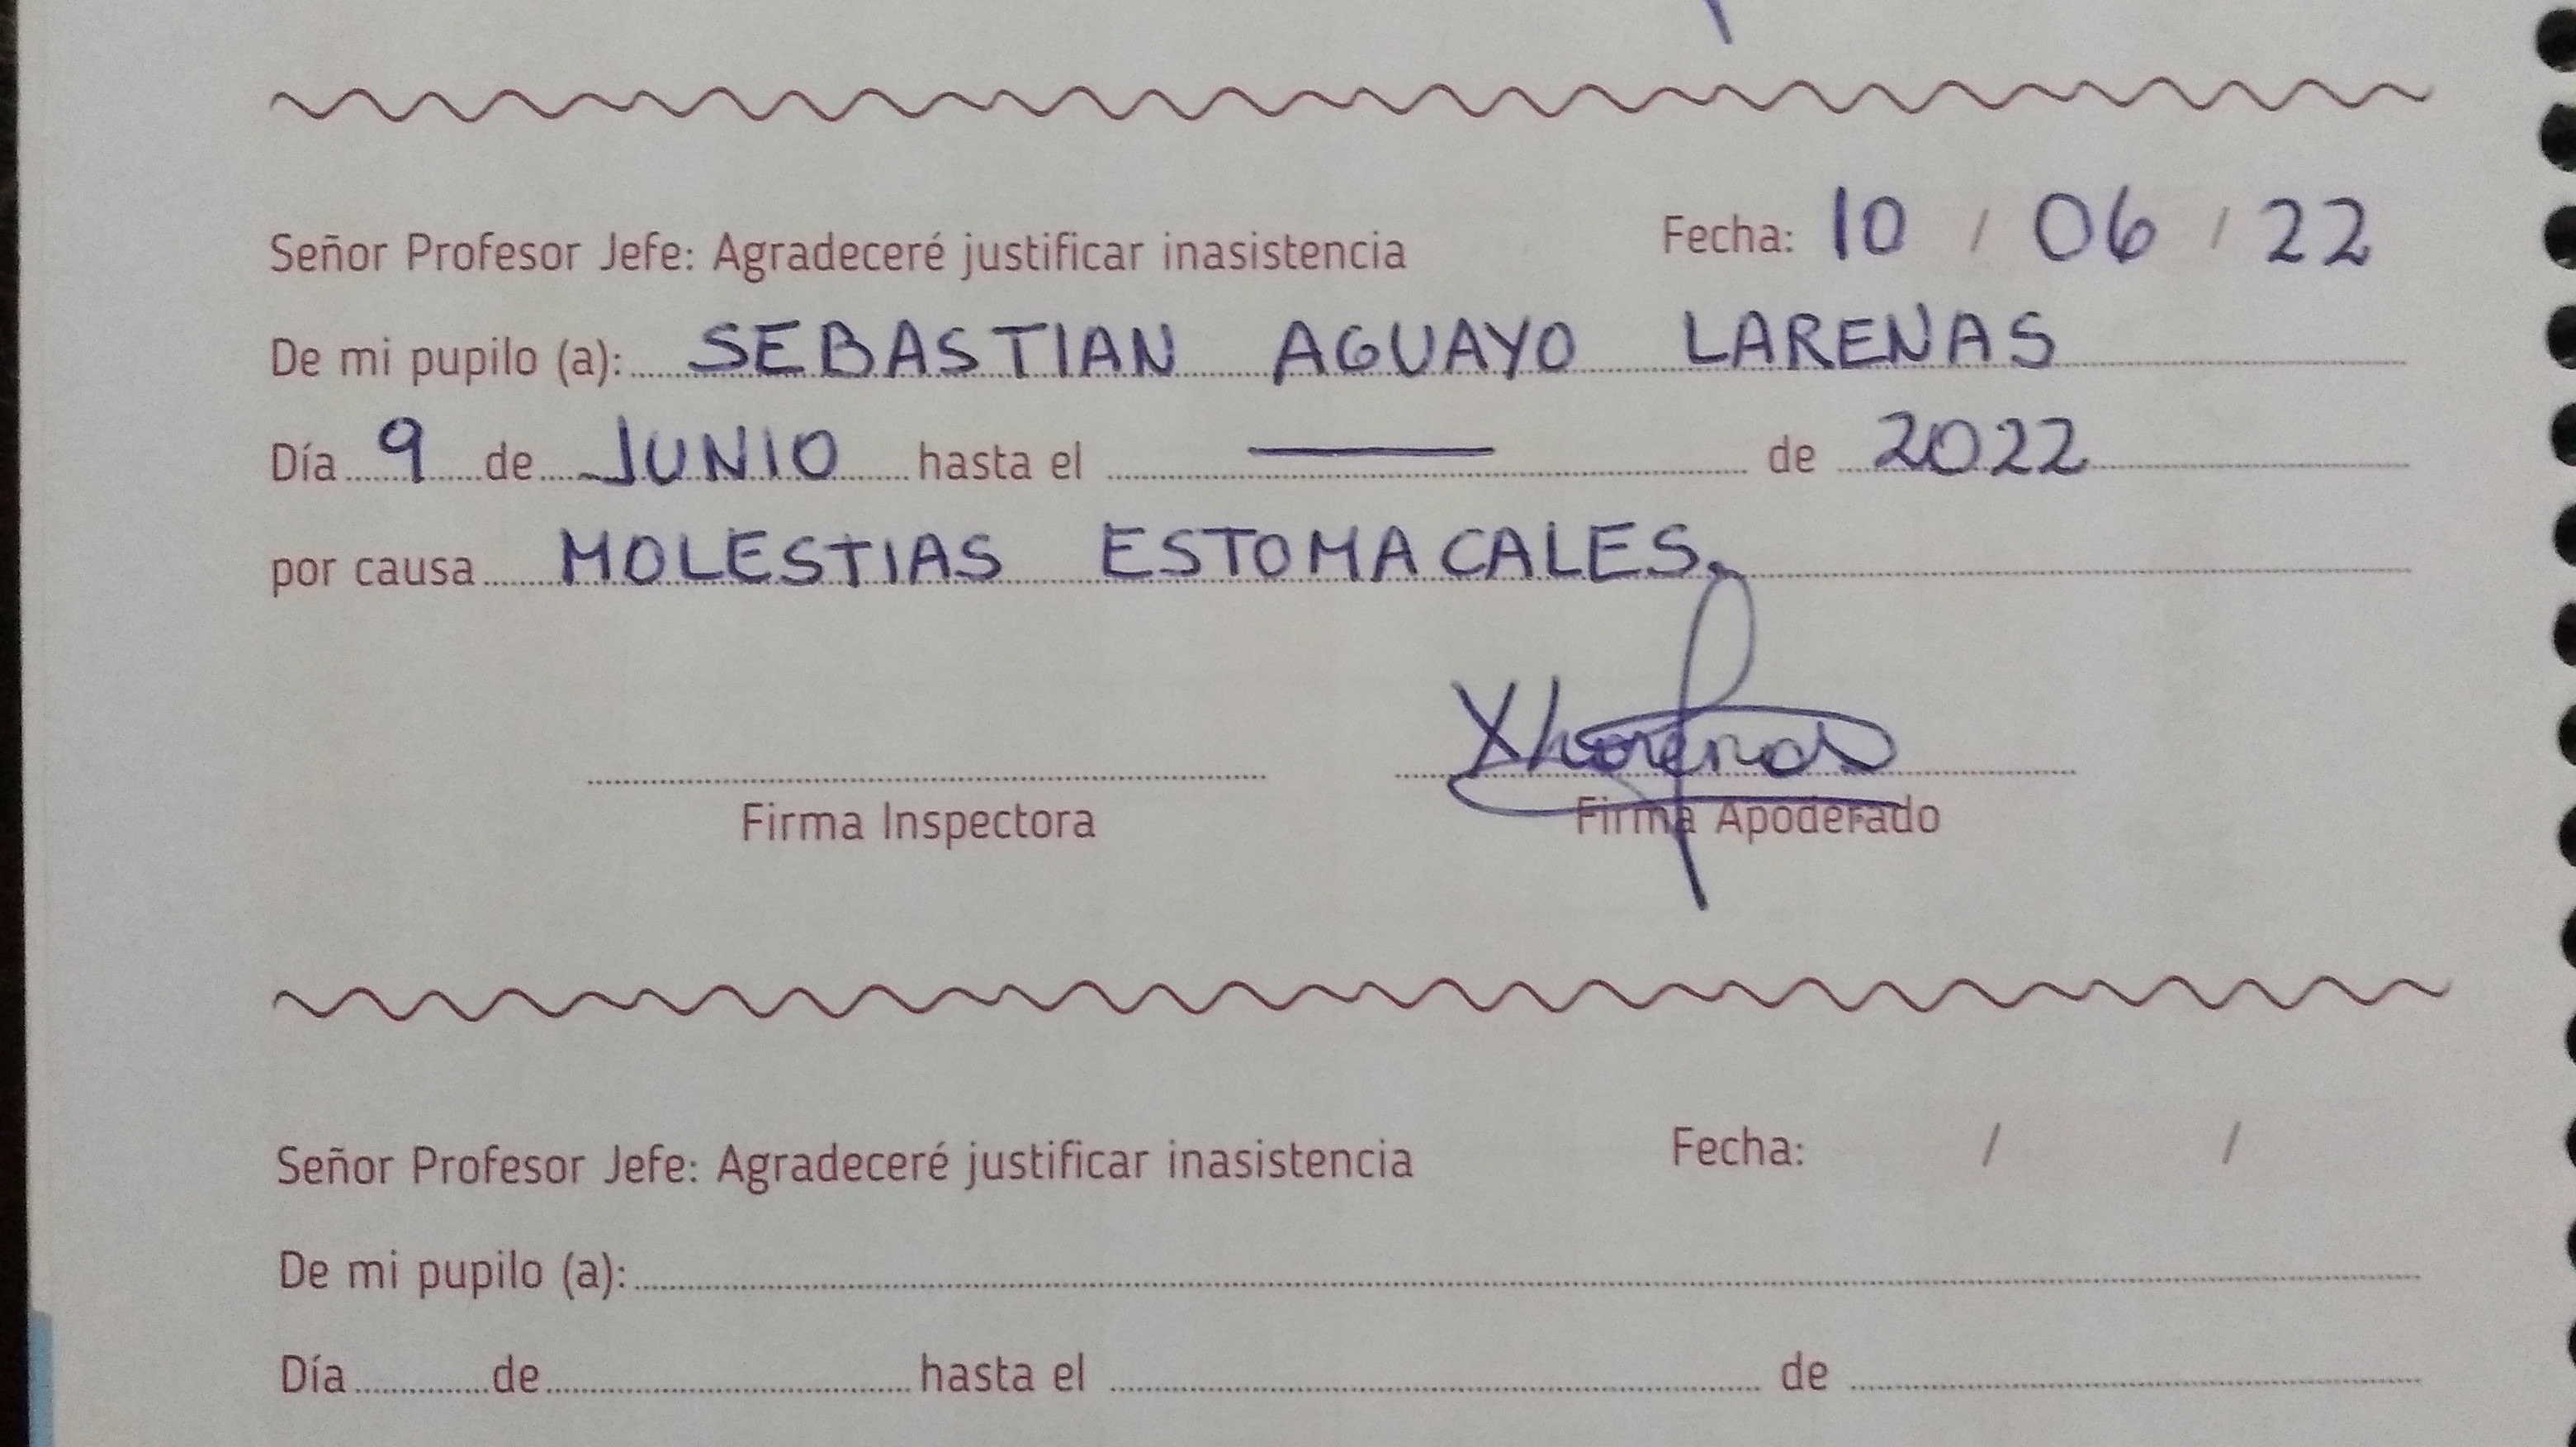 Señor Profesor Jefe: Agradeceré justificar inasistencia Fecha: 10 / 06 / 22
De mi pupilo (a): SEBASTIAN AGUAYO LARENAS
Día 9 de JUNIO hasta el — de 2022
por causa MOLESTIAS ESTOMACALES.
XLarenas
Firma Inspectora Firma Apoderado
Señor Profesor Jefe: Agradeceré justificar inasistencia Fecha: / /
De mi pupilo (a):
Día de hasta el de